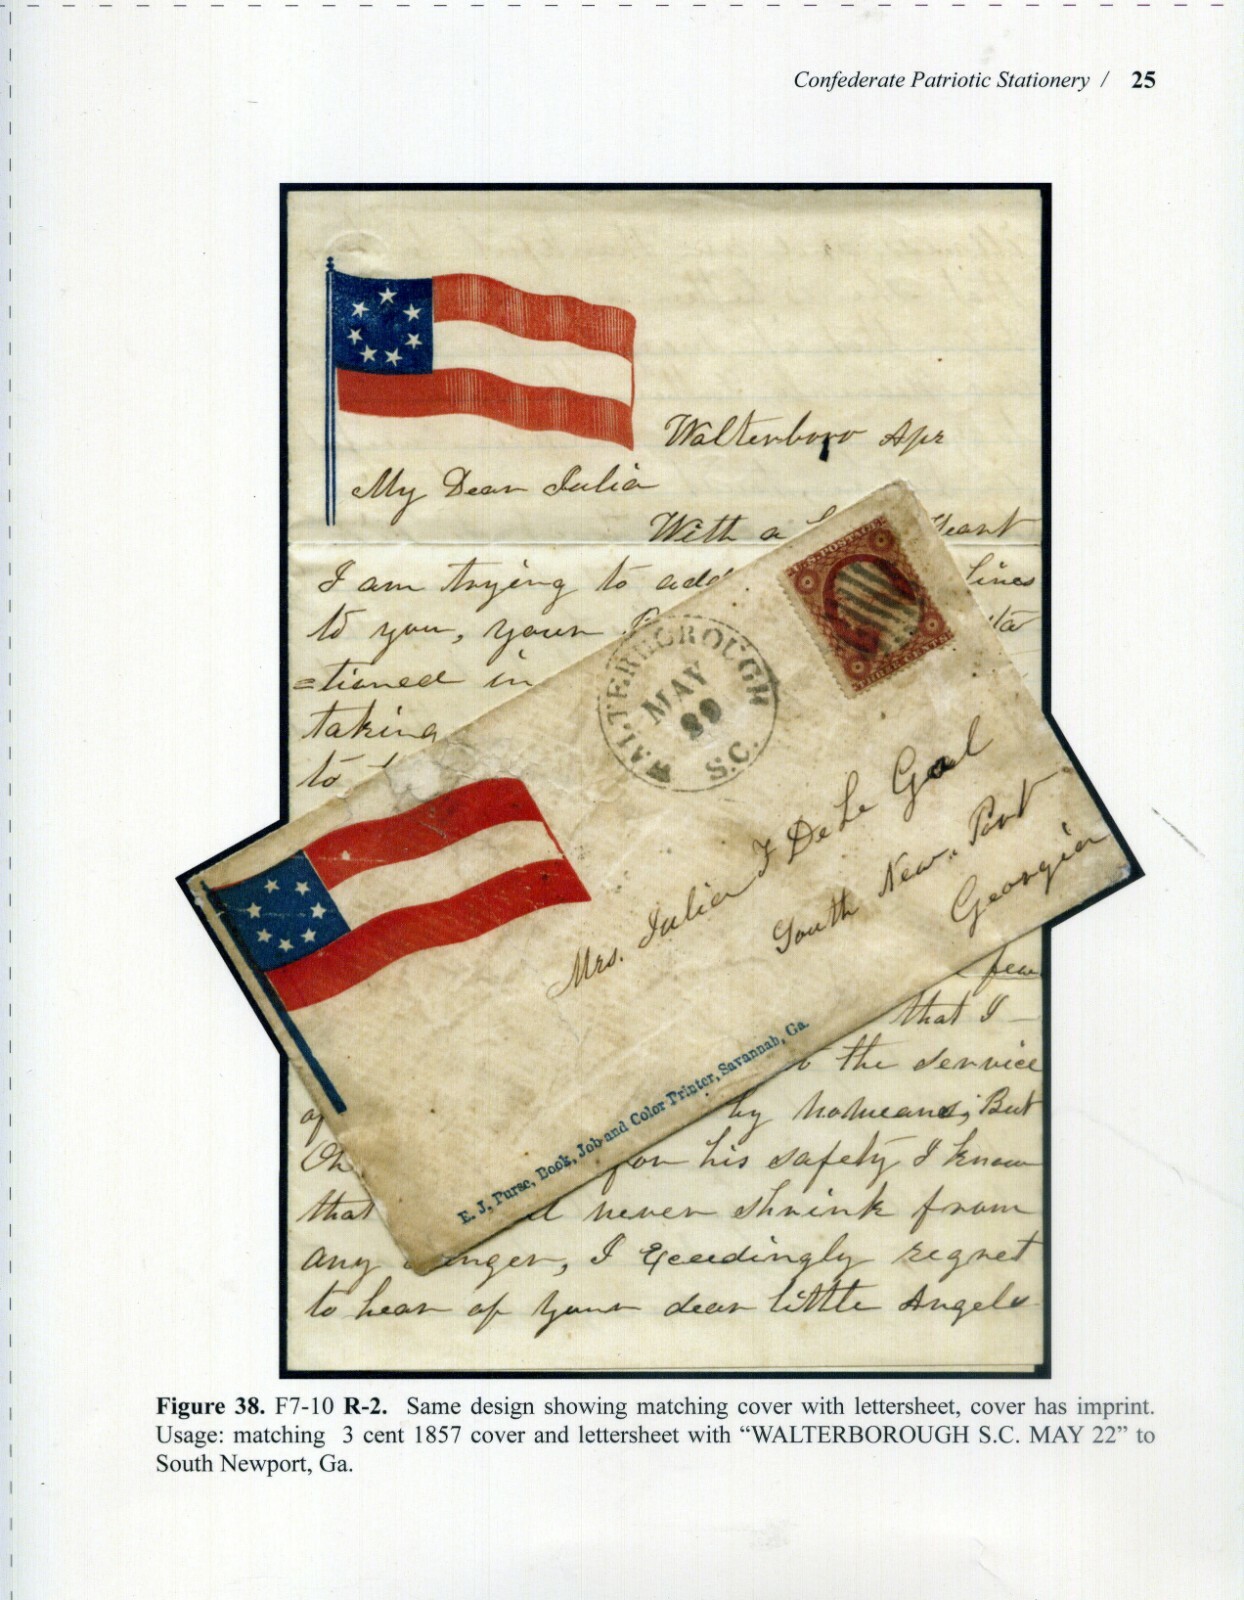 Confederate Patriotic Stationery / 25
Walterboro Apr
My Dear Julia
With a
Heart
I am trying to
lines
to you, your
=tioned in
taking
to
U.S. POSTAGE
THREE CENTS
WALTERBOROUGH
MAY
22
S.C.
Mrs. Julia F De Le Gal
South New. Port
Georgia
E. J. Purse, Book, Job and Color Printer, Savannah, Ga.
few
that I
the service
by no means; But
Oh
for his safety I know
that
never shrink from
any
I Exceedingly regret
to hear of your dear little Angels
Figure 38. F7-10 R-2. Same design showing matching cover with lettersheet, cover has imprint.
Usage: matching 3 cent 1857 cover and lettersheet with “WALTERBOROUGH S.C. MAY 22” to
South Newport, Ga.